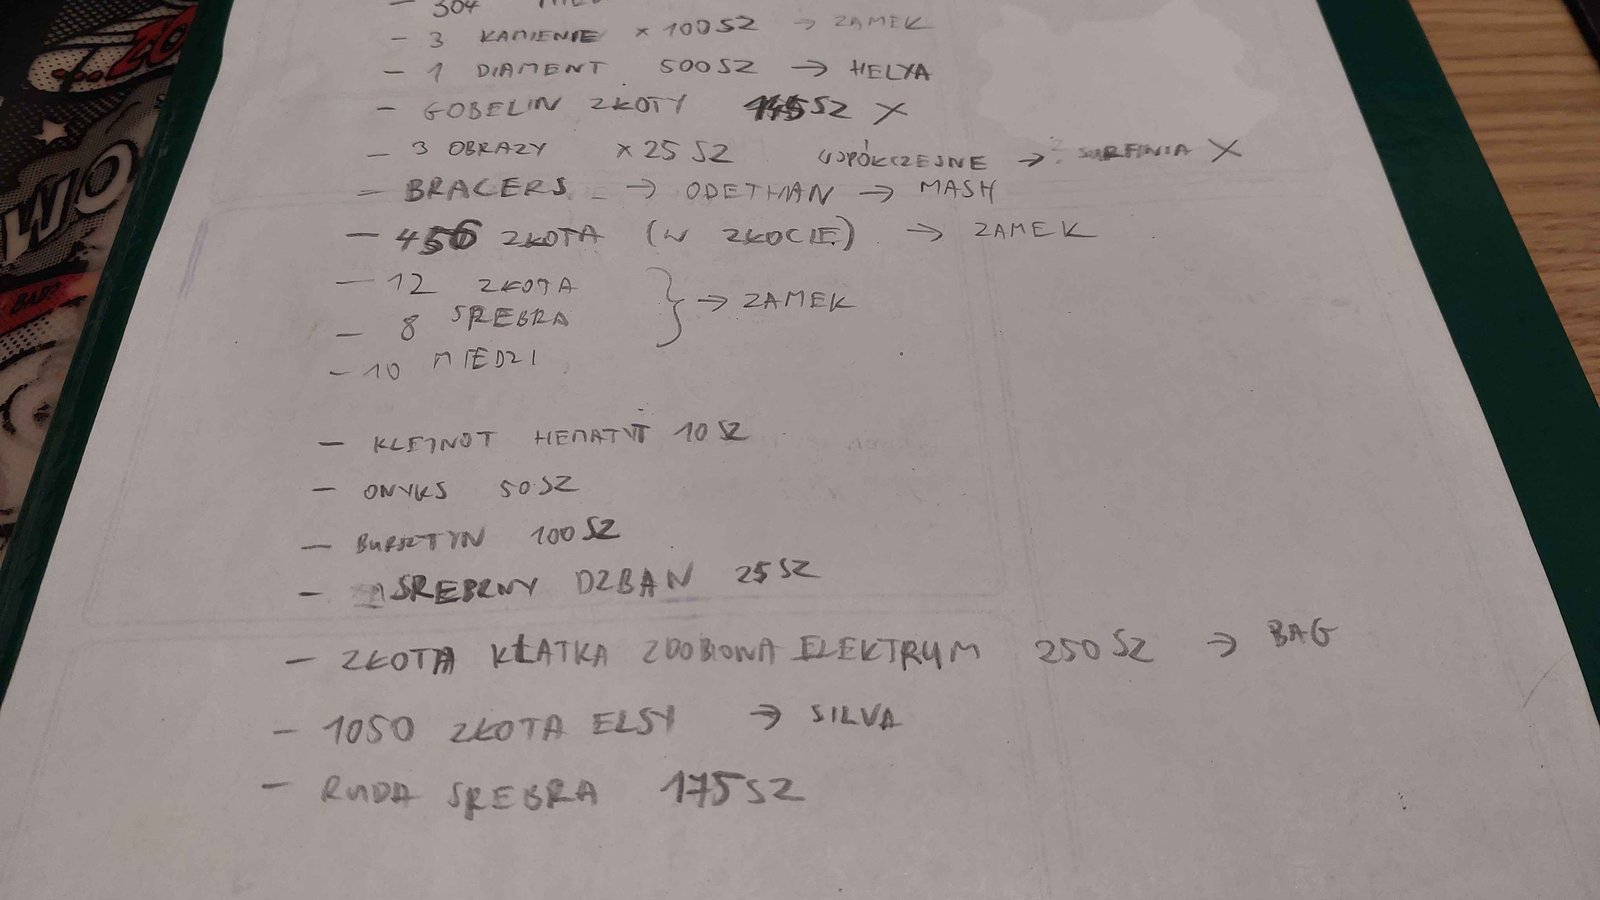 - 304
- 3 KAMIENIE x 100 SZ → ZAMEK
- 1 DIAMENT 500 SZ → HELYA
- GOBELIN ZŁOTY 145 SZ X
- 3 OBRAZY x 25 SZ WSPÓŁCZESNE → SURFINIA X
- BRACERS → ODETHAN → MASH
- 456 ZŁOTA (W ZŁOCIE) → ZAMEK
- 12 ZŁOTA
- 8 SREBRA } → ZAMEK
- 10 MIEDZI
- KLEJNOT HEMATYT 10 SZ
- ONYKS 50 SZ
- BURSZTYN 100 SZ
- SREBRNY DZBAN 25 SZ
- ZŁOTA KLATKA ZDOBIONA ELEKTRUM 250 SZ → BAG
- 1050 ZŁOTA ELSY → SILVA
- RUDA SREBRA 175 SZ
WOO